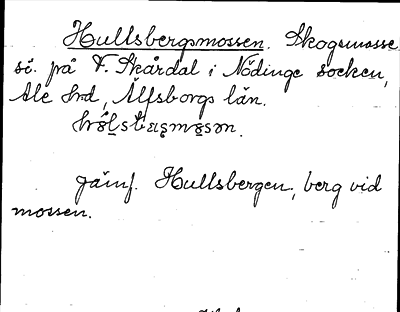 Hullsbergsmossen. Skogsmosse
sö. på V. Skårdal i Nödinge socken,
Ale hrd, Älfsborgs län.
jämf. Hullsbergen, berg vid
mossen.